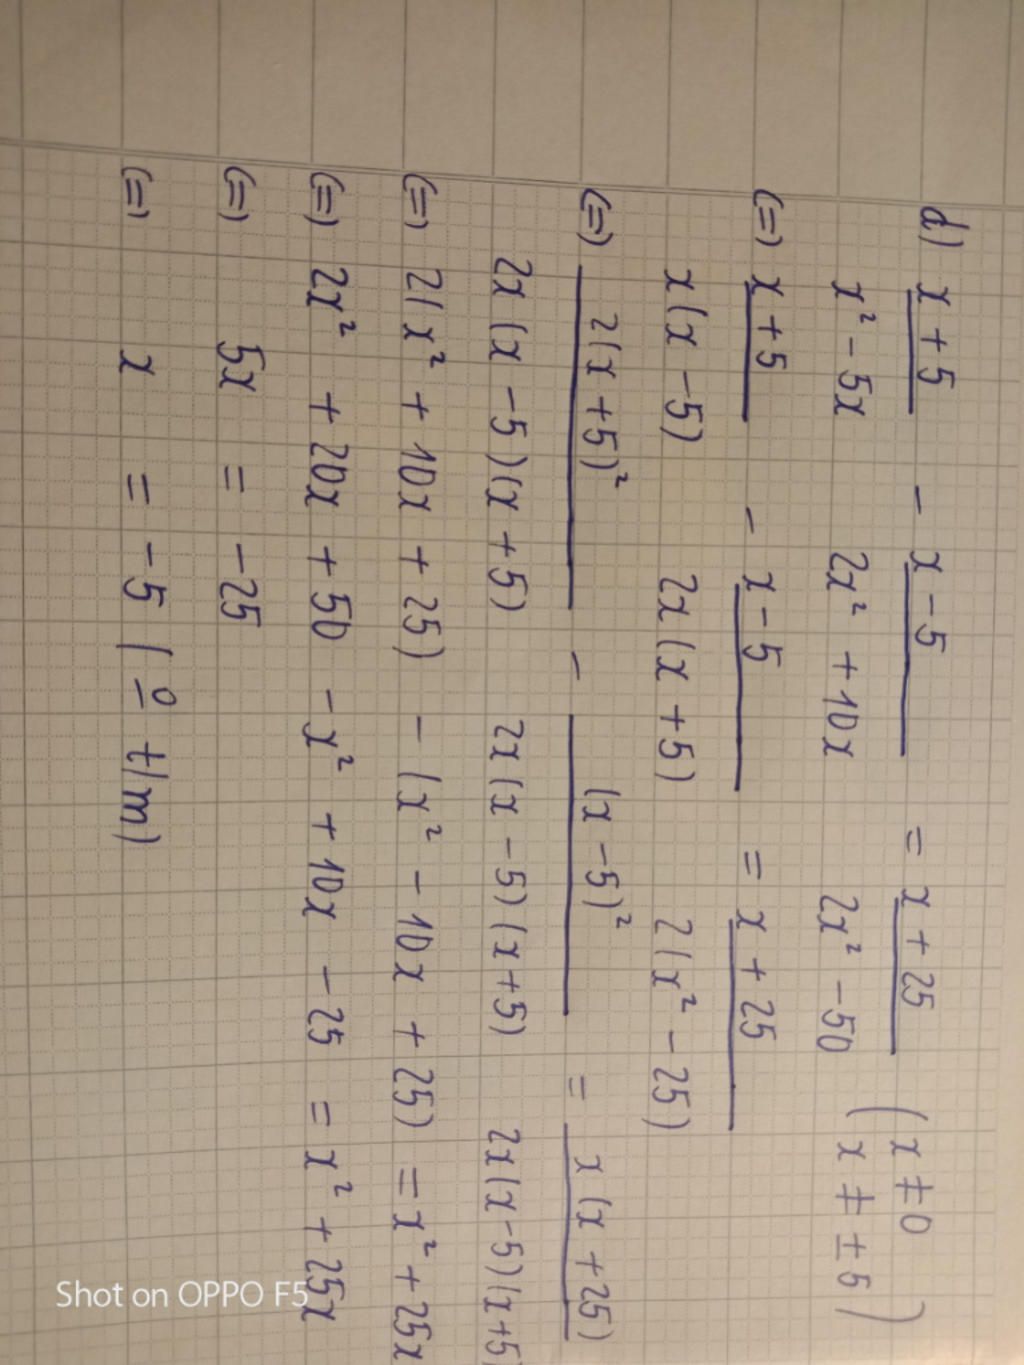 d) x + 5 - x - 5 = x + 25 ( x ≠ 0
x² - 5x 2x² + 10x 2x² - 50 x ≠ ± 5 )
(=) x + 5 - x - 5 = x + 25
x(x - 5) 2x(x + 5) 2(x² - 25)
(=) 2(x + 5)² - (x - 5)² = x(x + 25)
2x(x - 5)(x + 5) 2x(x - 5)(x + 5) 2x(x - 5)(x + 5)
(=) 2(x² + 10x + 25) - (x² - 10x + 25) = x² + 25x
(=) 2x² + 20x + 50 - x² + 10x - 25 = x² + 25x
(=) 5x = -25
(=) x = -5 (o t/m)
Shot on OPPO F5